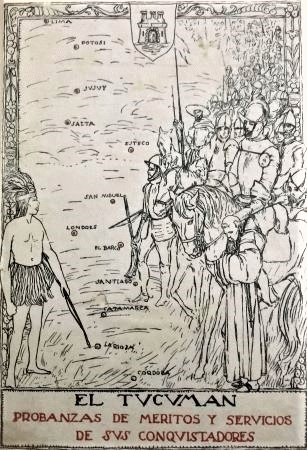 LIMA
POTOSI
JUJUY
SALTA
ESTECO
SAN MIGUEL
LONDRES
EL BARCO
SANTIAGO
CATAMARCA
LA RIOJA
CORDOBA
EL TUCUMAN
PROBANZAS DE MERITOS Y SERVICIOS
DE SUS CONQUISTADORES